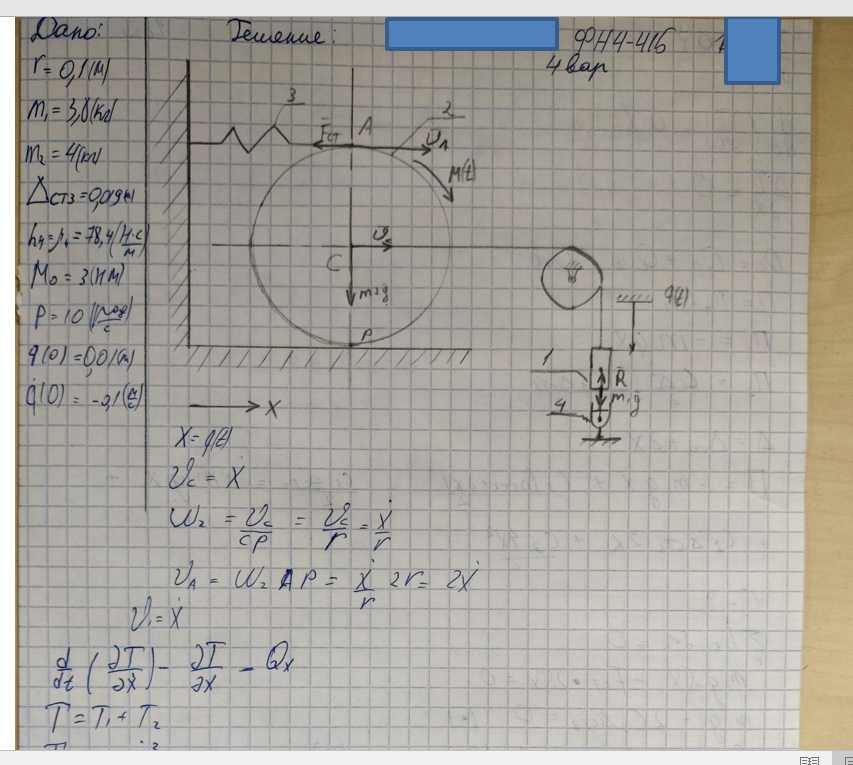 Дано:
r = 0,1 (м)
m₁ = 3,8 (кг)
m₂ = 4 (кг)
Δст3 = 0,019 м
h₄ = μ₄ = 78,4 (Н·с/м)
M₀ = 3 (Нм)
P = 10 (рад/с)
q(0) = 0,01 (м)
q̇(0) = -0,1 (м/с)
Решение:
ФН4-41Б
4 вар
3
Fст
A
2
υA
M(t)
υc
C
m₂g
P
q(t)
1
R
m₁g
4
X
X = q(t)
υc = ẋ
ω₂ = υc/CP = υc/r = ẋ/r
υA = ω₂ AP = ẋ/r 2r = 2ẋ
υ₁ = ẋ
d/dt (∂T/∂ẋ) - ∂T/∂x = Qx
T = T₁ + T₂